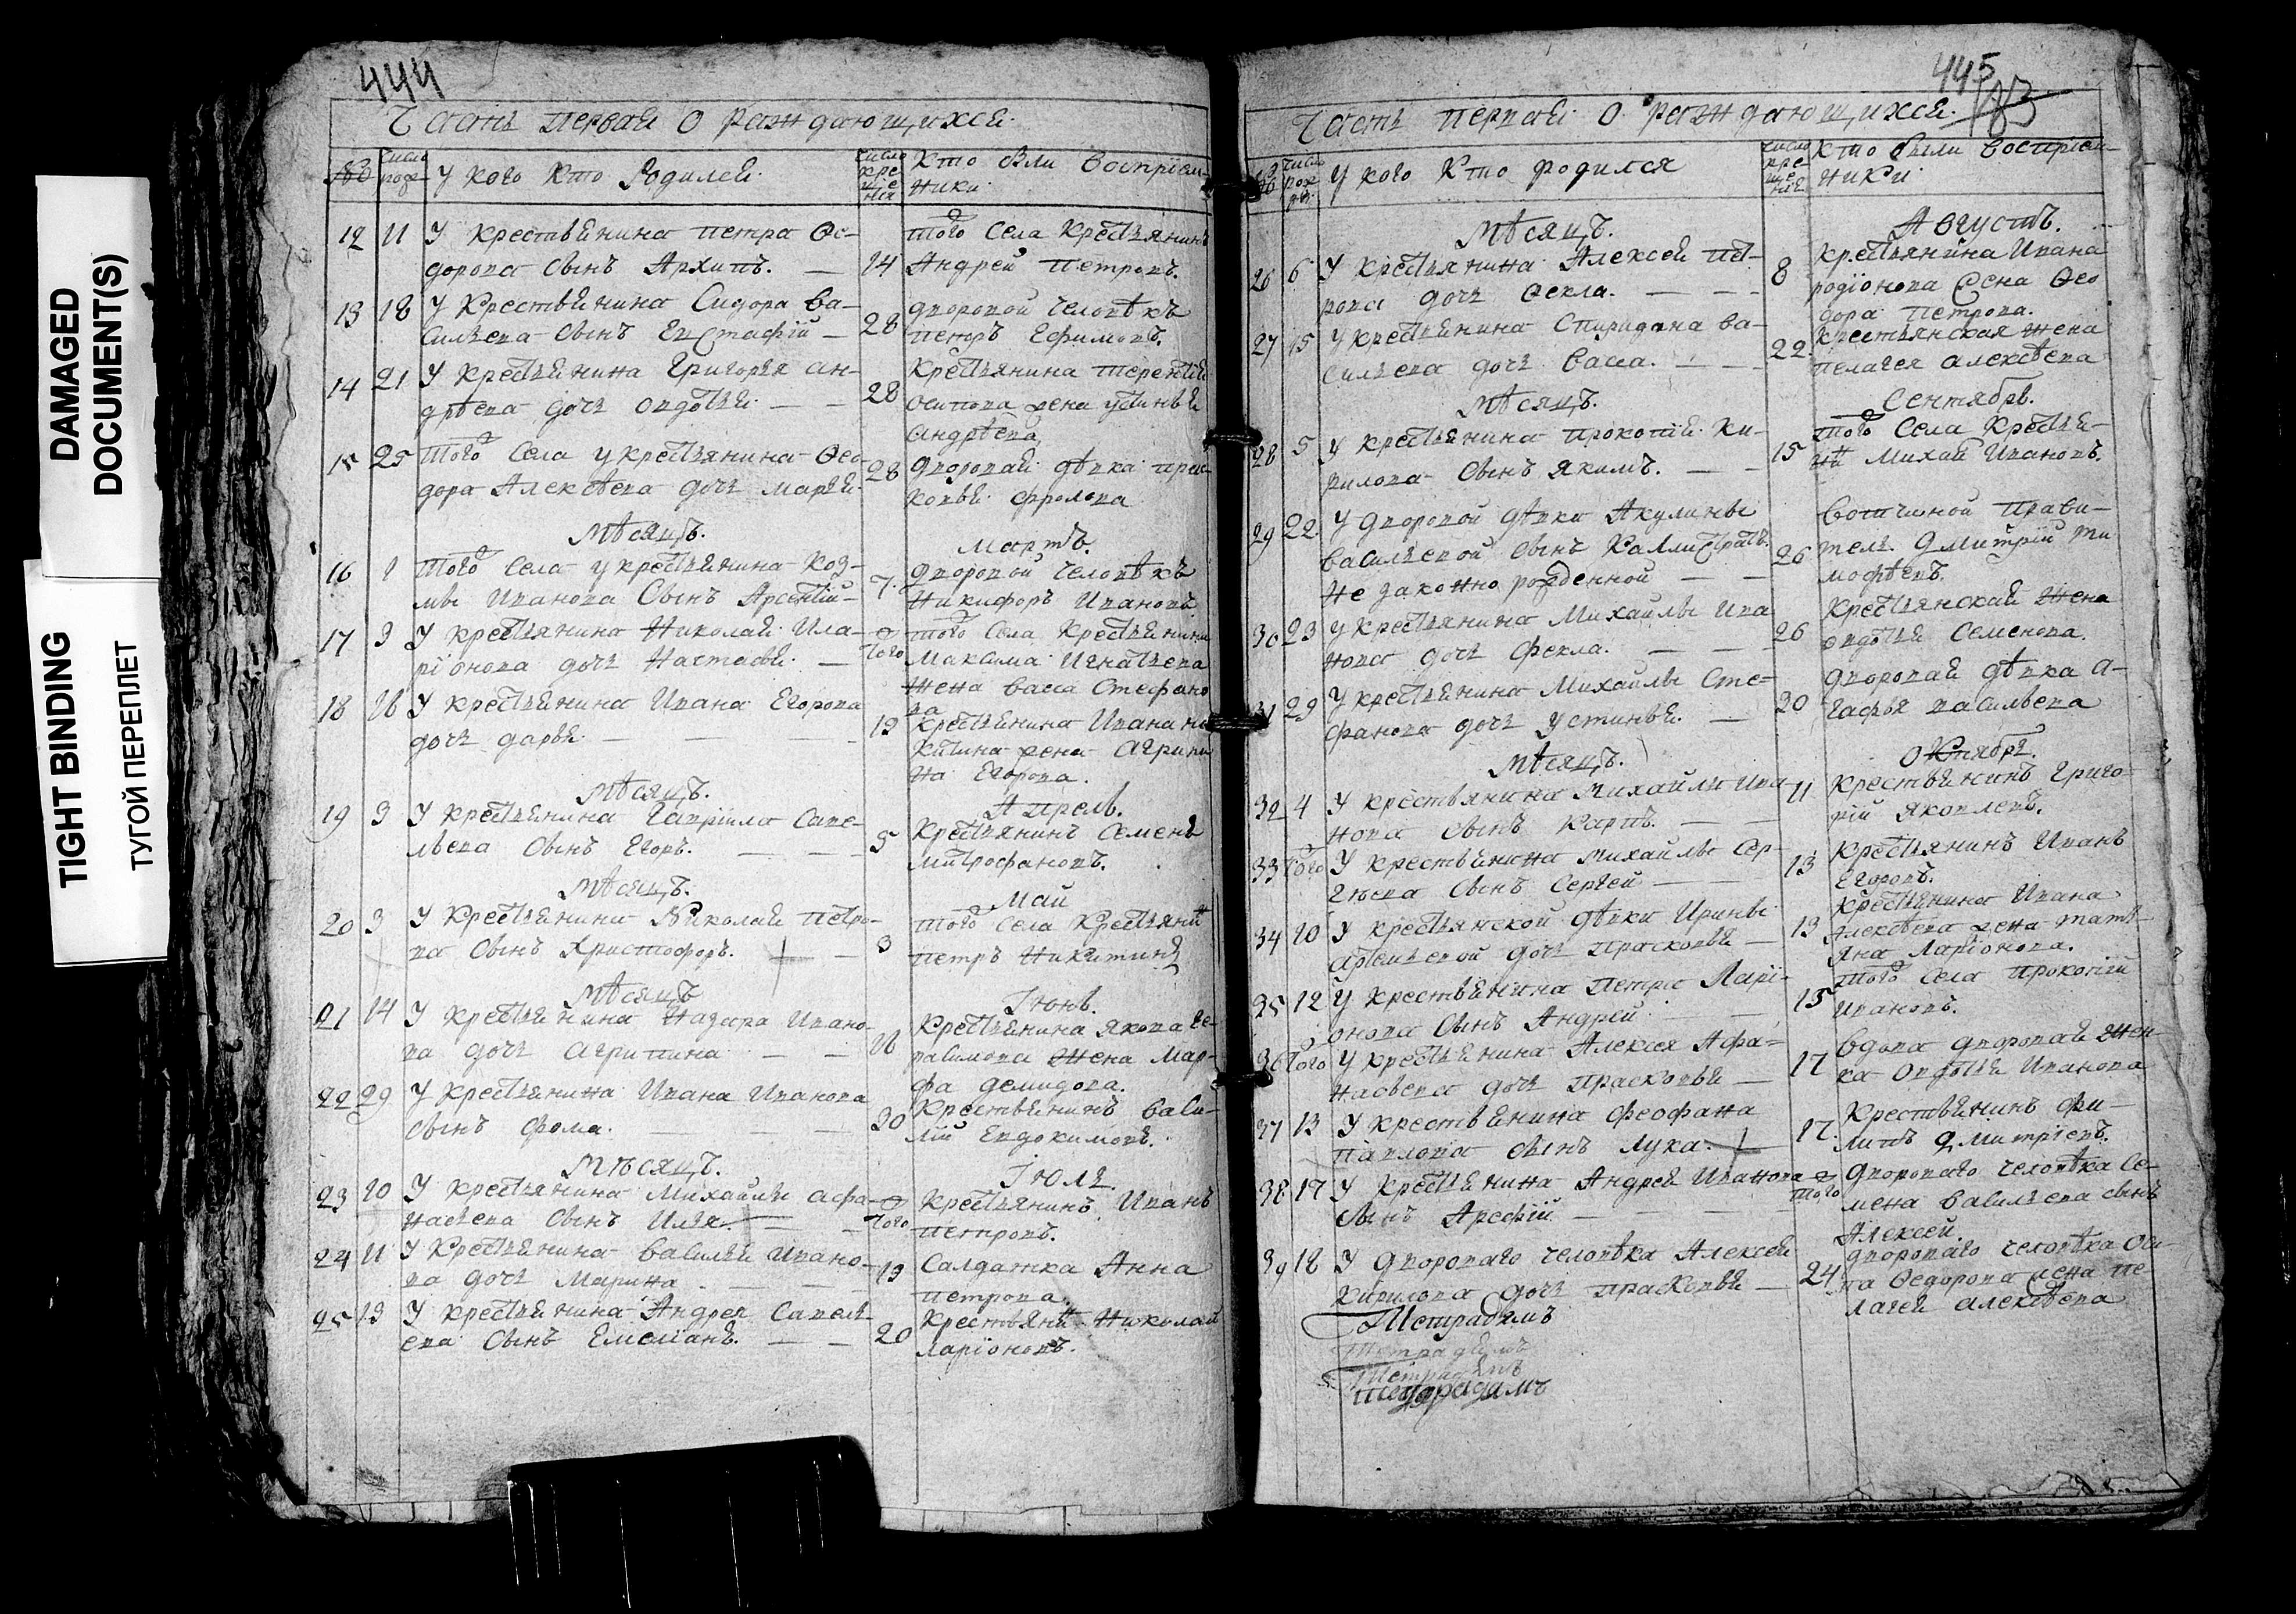 DAMAGED
DOCUMENT(S)
TIGHT BINDING
ТУГОЙ ПЕРЕПЛЕТ
444
Часть первая о раждающихся.
№ число рожд У кого кто родился. число крещения Кто были воспріем-
ники.
12 11 У крестьянина Петра Ѳе-
дорова сынъ Архипъ. —
14 того села крестьянинъ
Андрей Петровъ.
13 18 У крестьянина Сидора Ва-
сильева сынъ Евстафій —
28 дворовой человѣкъ
Петръ Ефимовъ.
14 21 У крестьянина Григорья Ан-
дрѣева дочь Овдотья. — —
28 крестьянина Терентія
Осипова жена Устинья
Андрѣева
15 25 того села у крестьянина Ѳео-
дора Алексѣева дочь Марья.
28 дворовая дѣвка Прас-
ковья Фролова
Мѣсяцъ. Мартъ.
16 1 того села у крестьянина Коз-
мы Иванова сынъ Арсентій —
7. дворовой человѣкъ
Никифоръ Ивановъ
17 3 У крестьянина Николая Ила-
ріонова дочь Настасья. —
того того села крестьянина
Максима Игнатьева
жена Васса Стефано
ва
18 16 У крестьянина Ивана Егорова
дочь Дарья. — — —
19 крестьянина Ивана Ни
китина жена Агрипи
на Егорова.
Мѣсяцъ. Апрель.
19 3 У крестьянина Гавріила Саве-
льева сынъ Егоръ. — —
5 крестьянинъ Семенъ
Митрофановъ.
Мѣсяцъ. Май
20 3 У крестьянина Николая Петро-
ва сынъ Христофоръ. —
3 того села крестьянинъ
Петръ Никитинъ
Мѣсяцъ Іюнь.
21 14 У крестьянина Назара Ивано-
ва дочь Агрипина — —
16 крестьянина Якова Ге-
расимова жена Мар-
фа Демидова.
22 29 У крестьянина Ивана Иванова
сынъ Фома. — — —
30 крестьянинъ Васи-
лій Евдокимовъ.
Мѣсяцъ. Іюль
23 10 У крестьянина Михайлы Афа-
насьева сынъ Илья. —
того крестьянинъ Иванъ
Петровъ.
24 11 У крестьянина Василья Ивано-
ва дочь Марина. — —
13 Салдатка Анна
Петрова.
25 19 У крестьянина Андрея Савель
ева сынъ Емеліанъ. — —
20 крестьянинъ Николай
Ларіоновъ.
445
183
Часть первая о раждающихся.
№ число рожд У кого кто родился число крещенія Кто были воспріем-
ники.
Мѣсяцъ. Августъ.
26 6 У крестьянина Алексея Пет-
рова дочь Ѳекла. — — —
8 крестьянина Ивана
Родіонова жена Ѳео
дора Петрова.
27 15 У крестьянина Спиридона Ва-
сильева дочь Васса. — —
22. крестьянская жена
Пелагея Алексѣева
Мѣсяцъ. Сентябрь.
28 5 У крестьянина Прокопія Ки-
рилова сынъ Якимъ. — —
15 того села крестья-
нинъ Михай Ивановъ.
29 22. У дворовой дѣвки Акулины
Васильевой сынъ Каллистратъ.
незаконно рожденной — —
26 вотчиной прави-
тель. Дмитрій Ти
мофѣевъ.
30 23 У крестьянина Михайлы Ива
нова дочь Фекла. — — —
26 крестьянская жена
Овдотья Семенова.
31 29 У крестьянина Михайлы Сте-
фанова дочь Устинья. —
30 дворовая дѣвка А-
гафья Васильева
Мѣсяцъ. Октябрь.
32 4 У крестьянина Михайлы Ива
нова сынъ Карпъ. — —
11 крестьянинъ Григо-
рій Яковлевъ.
33 того У крестьянина Михайлы Сер-
гѣева сынъ Сергей — —
13 крестьянинъ Иванъ
Егоровъ.
34 10 У крестьянской дѣвки Ирины
Артемьевой дочь Прасковья —
13 крестьянина Ивана
Алексѣева жена Тать-
яна Ларіонова.
35 12 У крестьянина Петра Ларі-
онова сынъ Андрей — —
15 того села Прокопій
Ивановъ.
36 того У крестьянина Алексея Афа-
насьева дочь Прасковья —
17 вдова дворовая жен-
ка Овдотья Иванова
37 13 У крестьянина Феофана
Павлова сынъ Лука. —
17. крестьянинъ Фи-
липъ Дмитріевъ.
38 17 У крестьянина Андрея Иванова
сынъ Арефій — — —
того дворового человѣка Се-
мена Васильева сынъ
Алексей.
39 18 У дворового человѣка Алексея
Кирилова дочь Прасковья —
24 дворового человѣка Оси
па Ѳедорова жена Пе
лагея Алексѣева